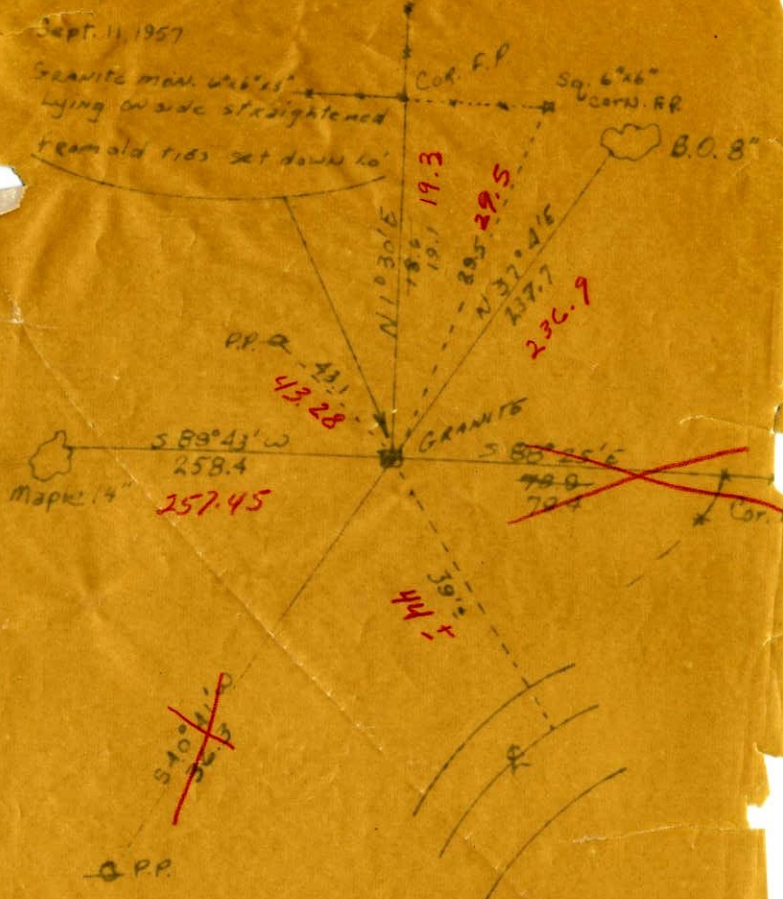 Sept. 11, 1957
GRANITE MON. 6"x6"x
Lying on side straightened
From old ties set down
COR. F.P.
Sq. 6"x6"
CORN. F.P.
B.O. 8"
N 1° 30' E
18.6
19.1
19.3
39.5
39.5
N 37° 41' E
237.7
236.9
P.P.
43.1
43.28
GRANITE
S 89° 43' W
258.4
257.45
Maple 14"
S 88° 25' E
79.4
Cor.
39'±
44±
S 40° 41' W
36.3
P.P.